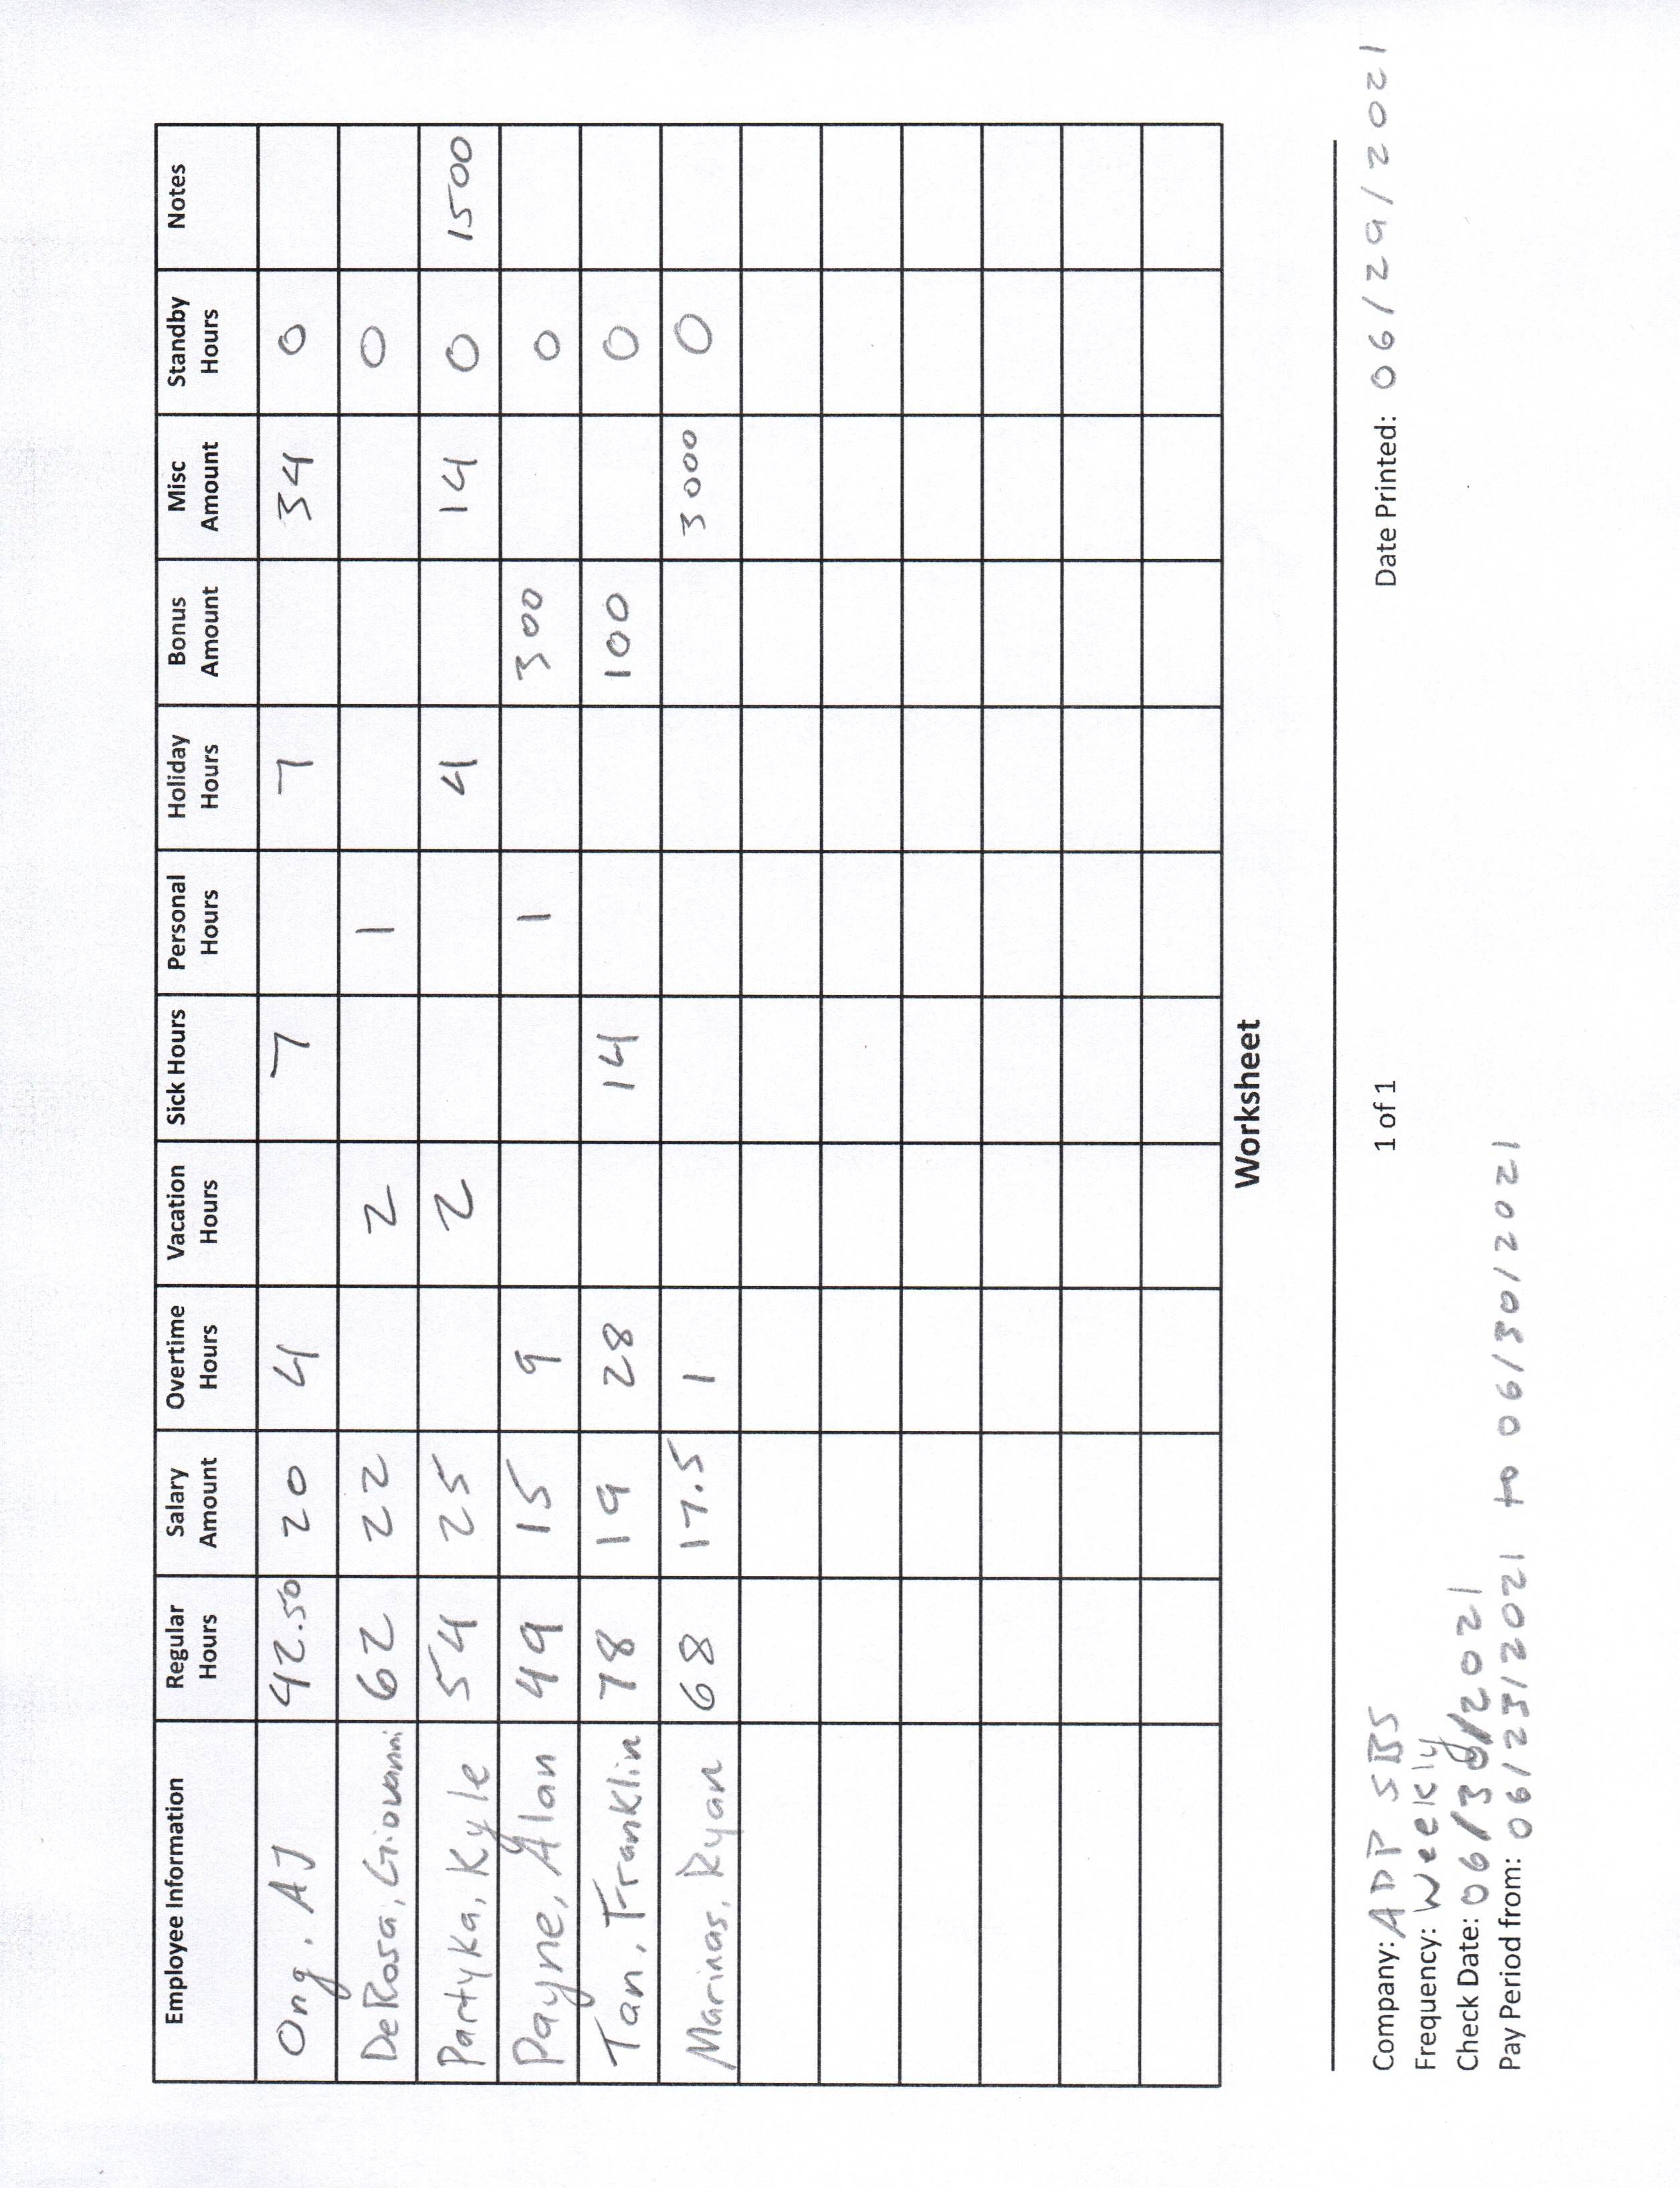 Employee Information Regular Hours Salary Amount Overtime Hours Vacation Hours Sick Hours Personal Hours Holiday Hours Bonus Amount Misc Amount Standby Hours Notes
Ong, AJ 42.50 20 4 7 7 34 0
DeRosa, Giovanni 62 22 2 1 0
Partyka, Kyle 54 25 2 4 14 0 1500
Payne, Alan 49 15 9 1 300 0
Tan, Franklin 78 19 28 14 100 0
Marinas, Ryan 68 17.5 1 3000 0
Worksheet
Company: ADP SBS 1 of 1 Date Printed: 06/29/2021
Frequency: Weekly
Check Date: 06/30/2021
Pay Period from: 06/23/2021 to 06/30/2021